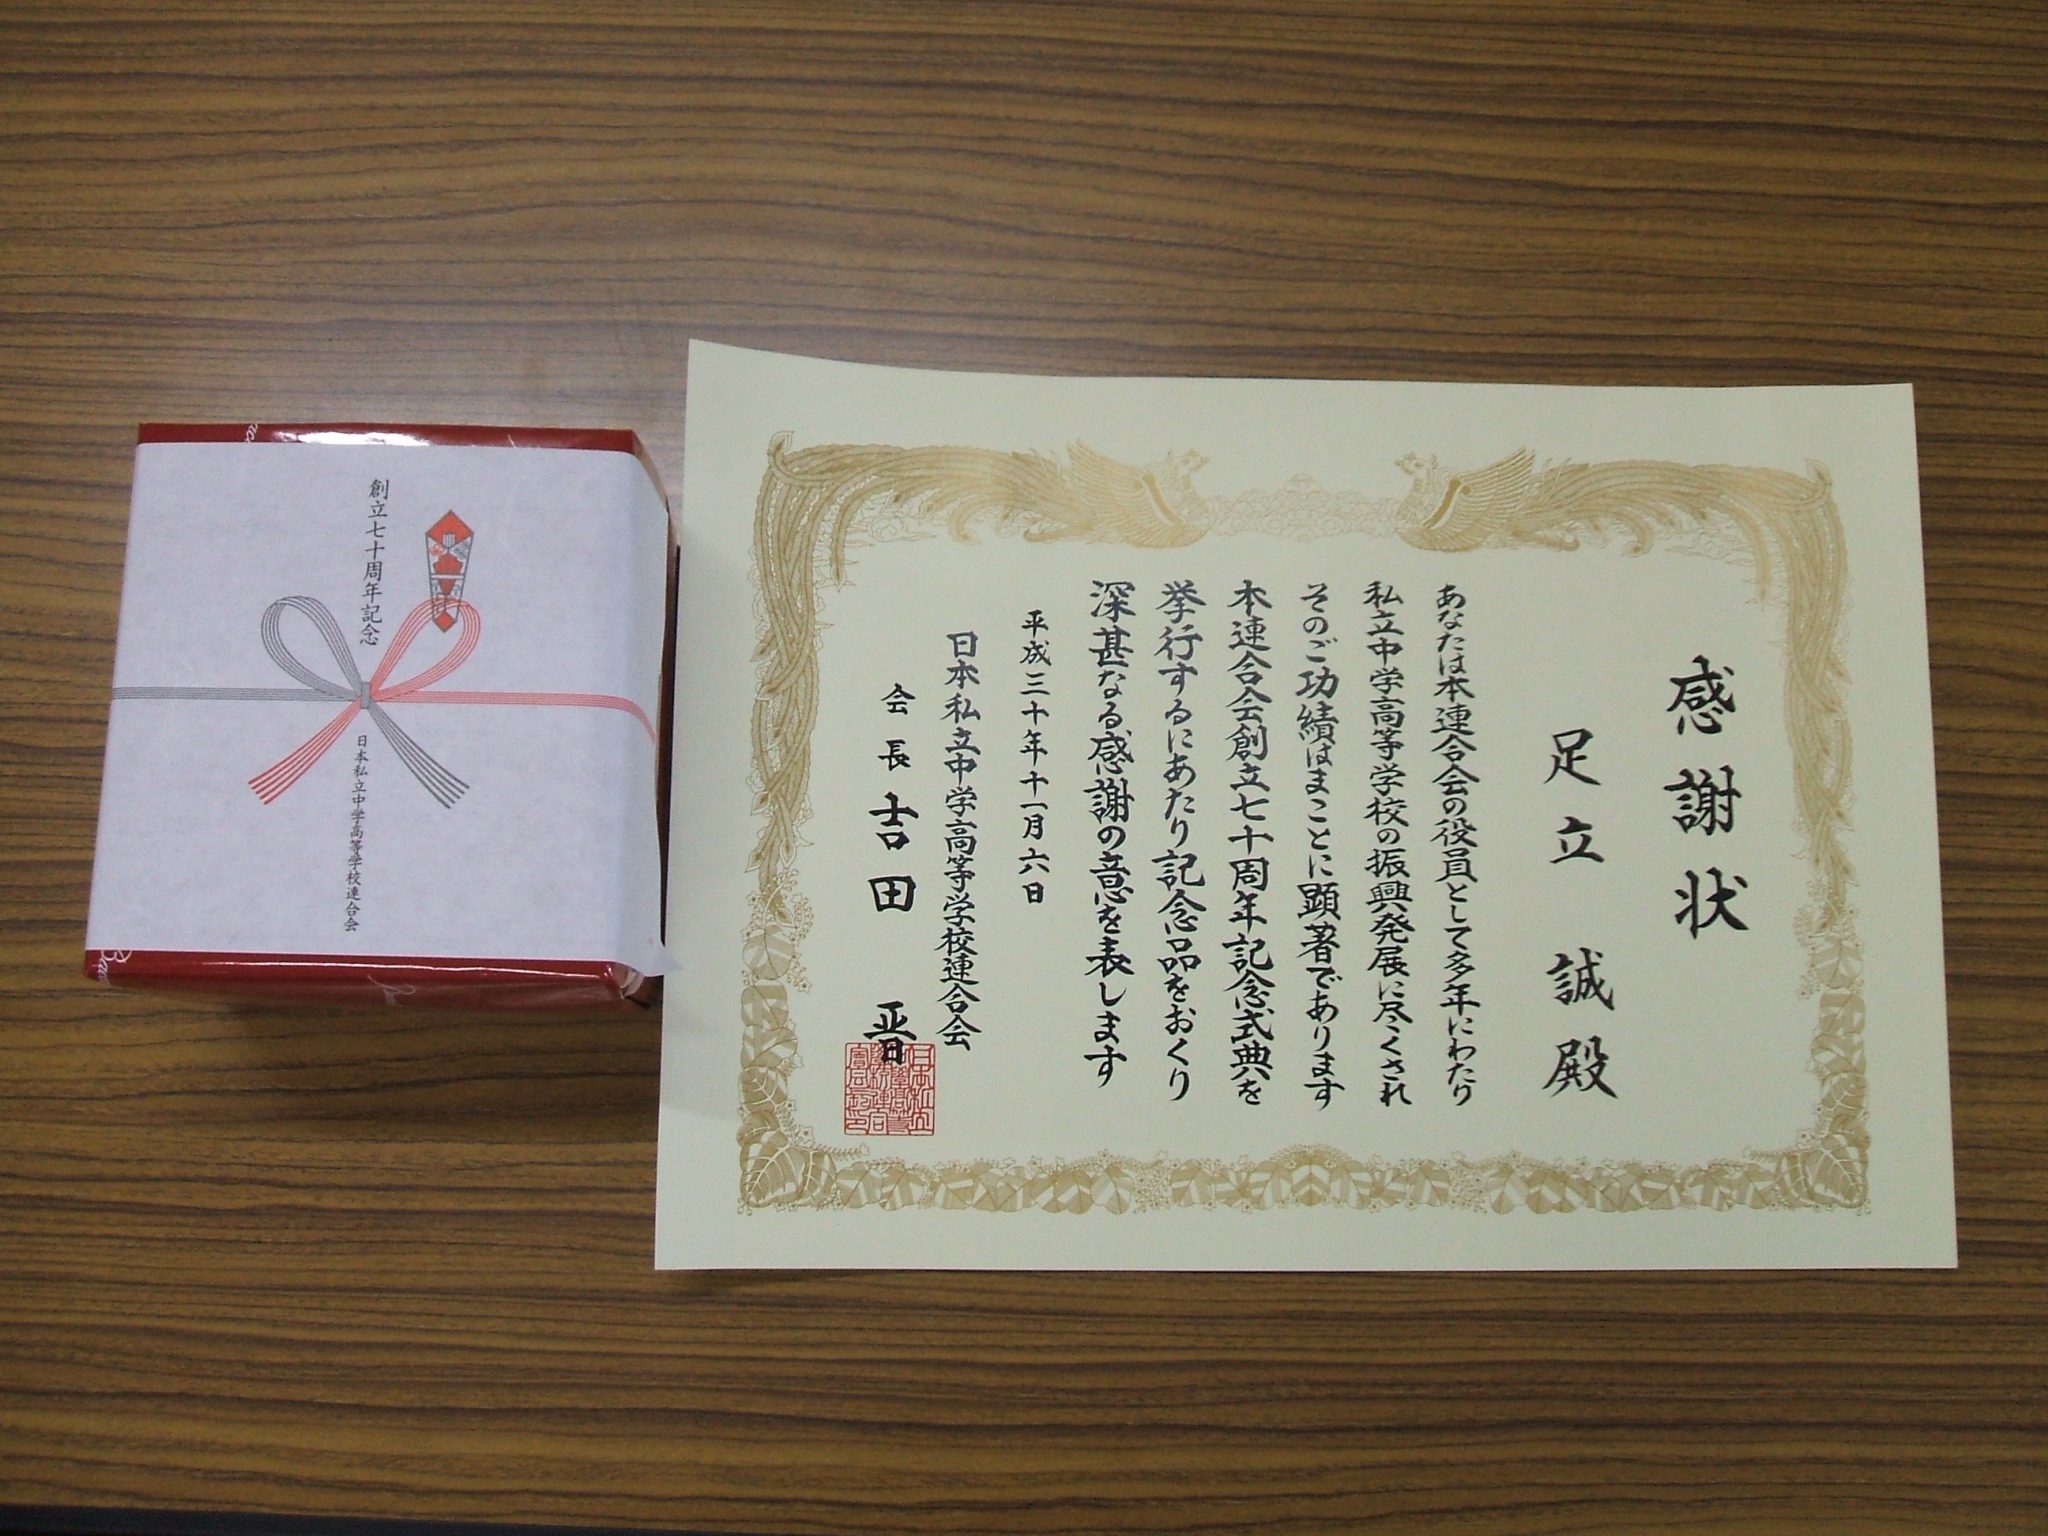 創立七十周年記念
日本私立中学高等学校連合会
感謝状
足立誠殿
あなたは本連合会の役員として多年にわたり
私立中学高等学校の振興発展に尽くされ
そのご功績はまことに顕著であります
本連合会創立七十周年記念式典を
挙行するにあたり記念品をおくり
深甚なる感謝の意を表します
平成三十年十一月六日
日本私立中学高等学校連合会
会長吉田晋